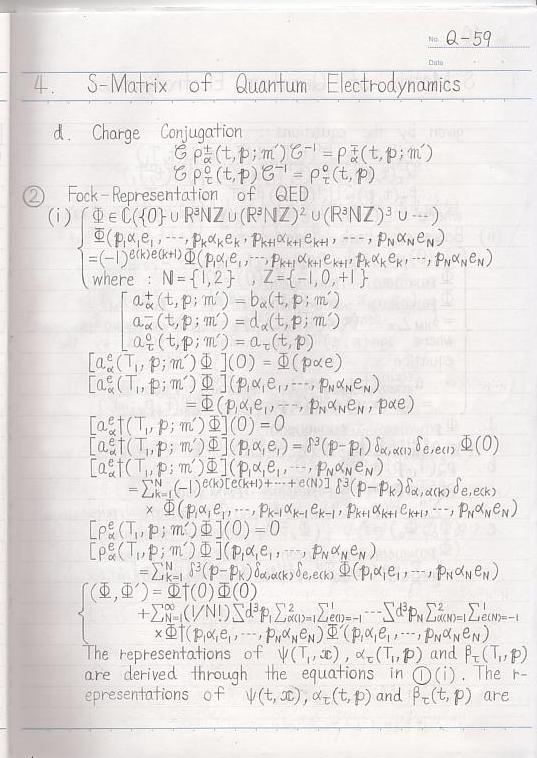 No. Q-59
Date
4. S-Matrix of Quantum Electrodynamics
d. Charge Conjugation
𝒞 ρ±α(t, p; m′) 𝒞⁻¹ = ρ∓α(t, p; m′)
𝒞 ρ⁰τ(t, p) 𝒞⁻¹ = ρ⁰τ(t, p)
② Fock-Representation of QED
(i) Φ ∈ ℂ({0} ∪ ℝ³ℕℤ ∪ (ℝ³ℕℤ)² ∪ (ℝ³ℕℤ)³ ∪ ···)
Φ(p₁α₁e₁, ···, pₖαₖeₖ, pₖ₊₁αₖ₊₁eₖ₊₁, ···, p_Nα_Ne_N)
= (-1)^{e(k)e(k+1)} Φ(p₁α₁e₁, ···, pₖ₊₁αₖ₊₁eₖ₊₁, pₖαₖeₖ, ···, p_Nα_Ne_N)
where : ℕ = {1, 2} , ℤ = {-1, 0, +1}
a⁺α(t, p; m′) = bα(t, p; m′)
a⁻α(t, p; m′) = dα(t, p; m′)
a⁰τ(t, p; m′) = aτ(t, p)
[aᵉα(T₁, p; m′) Φ](0) = Φ(pαe)
[aᵉα(T₁, p; m′) Φ](p₁α₁e₁, ···, p_Nα_Ne_N)
= Φ(p₁α₁e₁, ···, p_Nα_Ne_N, pαe)
[aᵉα†(T₁, p; m′) Φ](0) = 0
[aᵉα†(T₁, p; m′) Φ](p₁α₁e₁) = δ³(p-p₁) δ_{α,α(1)} δ_{e,e(1)} Φ(0)
[aᵉα†(T₁, p; m′) Φ](p₁α₁e₁, ···, p_Nα_Ne_N)
= Σ^N_{k=1} (-1)^{e(k)[e(k+1)+···+e(N)]} δ³(p-pₖ) δ_{α,α(k)} δ_{e,e(k)}
× Φ(p₁α₁e₁, ···, pₖ₋₁αₖ₋₁eₖ₋₁, pₖ₊₁αₖ₊₁eₖ₊₁, ···, p_Nα_Ne_N)
[ρᵉα(T₁, p; m′) Φ](0) = 0
[ρᵉα(T₁, p; m′) Φ](p₁α₁e₁, ···, p_Nα_Ne_N)
= Σ^N_{k=1} δ³(p-pₖ) δ_{α,α(k)} δ_{e,e(k)} Φ(p₁α₁e₁, ···, p_Nα_Ne_N)
(Φ, Φ′) = Φ†(0) Φ(0)
+ Σ^∞_{N=1} (1/N!) ∫d³p₁ Σ²_{α(1)=1} Σ¹_{e(1)=-1} ··· ∫d³p_N Σ²_{α(N)=1} Σ¹_{e(N)=-1}
× Φ†(p₁α₁e₁, ···, p_Nα_Ne_N) Φ′(p₁α₁e₁, ···, p_Nα_Ne_N)
The representations of ψ(T₁, x), ατ(T₁, p) and βτ(T₁, p)
are derived through the equations in ①(i). The r-
epresentations of ψ(t, x), ατ(t, p) and βτ(t, p) are